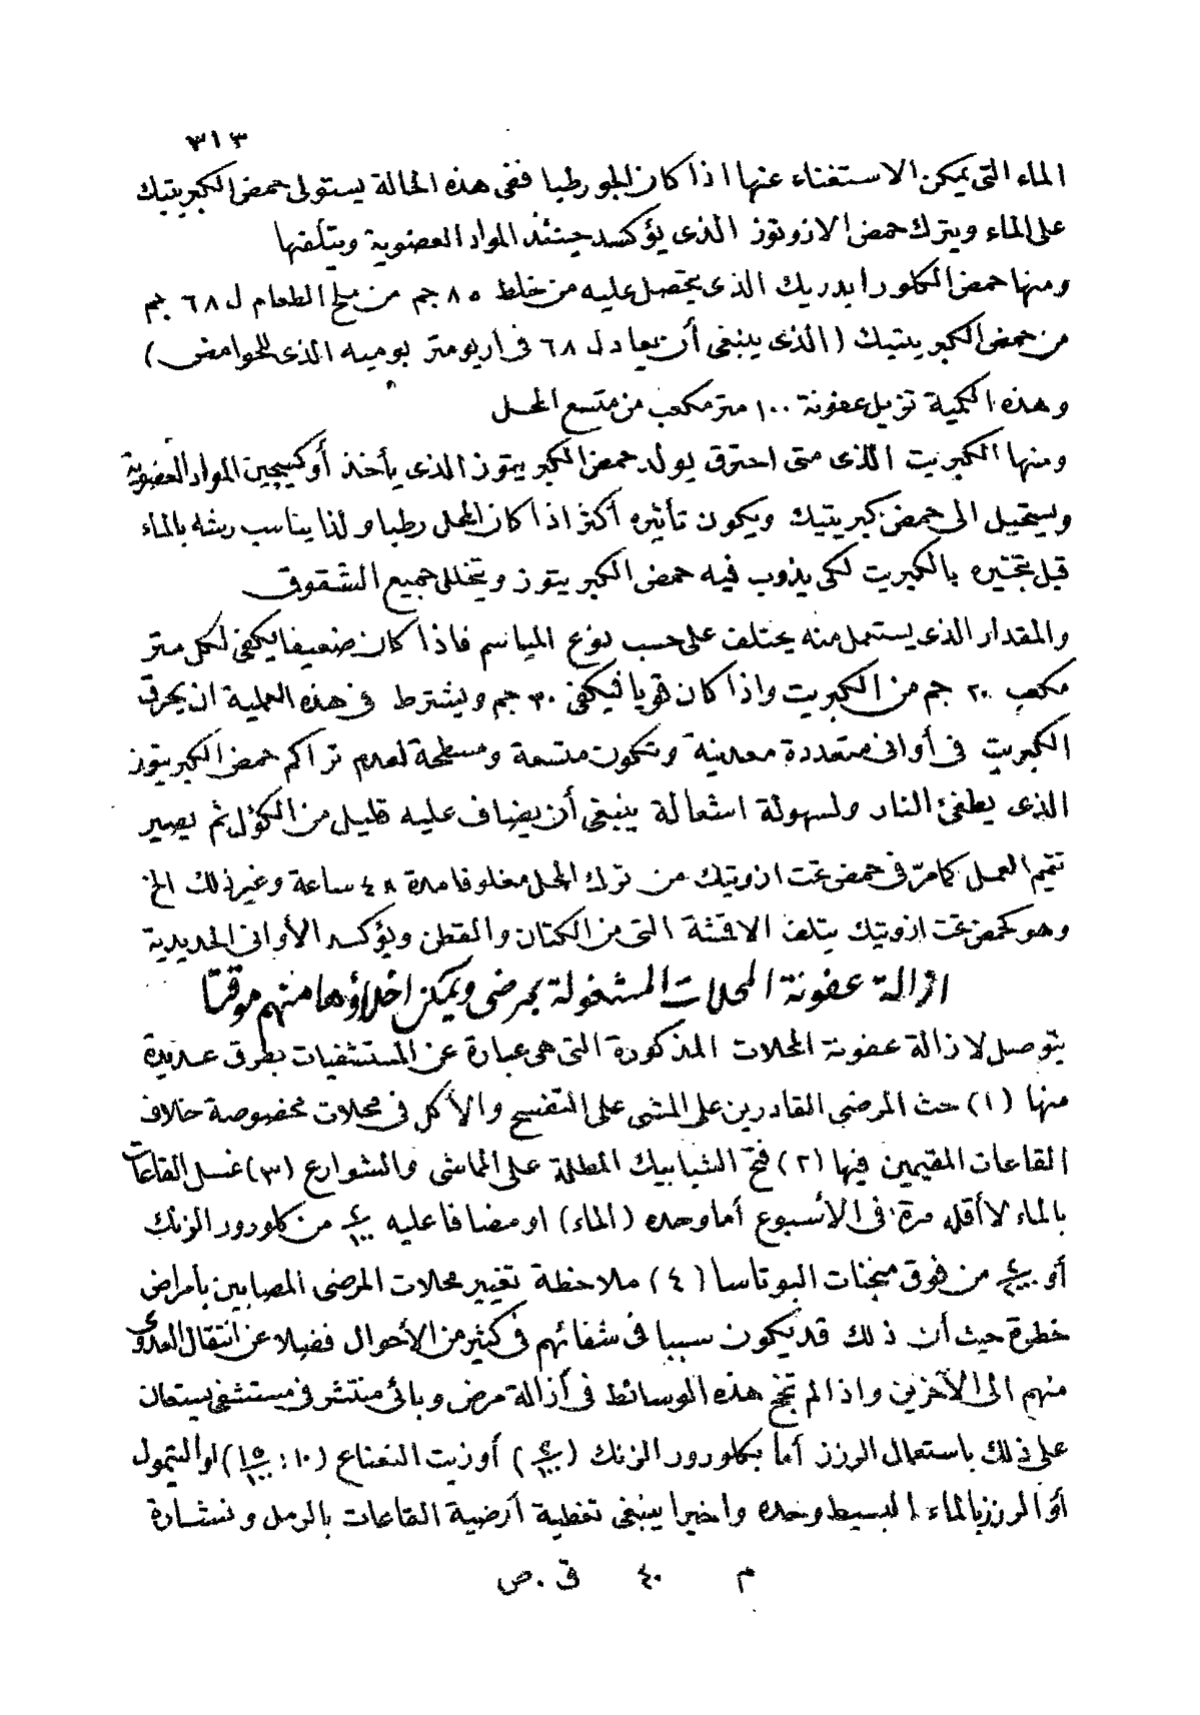 ٣١٣
الماء التى يمكن الاستغناء عنها اذا كان الجو رطبا ففى هذه الحالة يستولى حمض الكبريتيك
على الماء ويترك حمض الازوتوز الذى يؤكسد حينئذ المواد العضوية ويتلفها
ومنها حمض الكلورايدريك الذى يتحصل عليه من خلط ٨٥ جم من ملح الطعام ل ٦٨ جم
من حمض الكبريتيك (الذى ينبغى أن يعادل ٦٨ فى اريومتر بوميه الذى للحوامض)
وهذه الكمية تزيل عفونة ١٠٠ متر مكعب من متسع المحل
ومنها الكبريت الذى متى احترق يولد حمض الكبريتوز الذى يأخذ أوكسيجين المواد العضوية
ويستحيل الى حمض كبريتيك ويكون تأثيره أكثر اذا كان المحل رطبا ولذا يناسب رشه بالماء
قبل تبخيره بالكبريت لكى يذوب فيه حمض الكبريتوز ويتخلل جميع الشقوق
والمقدار الذى يستعمل منه يختلف على حسب نوع المياسم فاذا كان ضعيفا يكفى لكل متر
مكعب ٢٠ جم من الكبريت واذا كان قويا فيكفى ٣٠ جم ويشترط فى هذه العملية ان يحرق
الكبريت فى أوانى متعددة معدنية وتكون متسعة ومسطحة لعدم تراكم حمض الكبريتوز
الذى يطفئ النار ولسهولة اشعالة ينبغى أن يضاف عليه قليل من الكؤل ثم يصير
تتميم العمل كما مرّ فى حمض تحت ازوتيك من ترك المحل مغلوقا مدة ٤٨ ساعة وغير ذلك الخ
وهو كحمض تحت ازوتيك يتلف الاقمشة التى من الكتان والقطن ويؤكسد الأوانى الحديدية
ازالة عفونة المحلات المشغولة بمرضى ويمكن اخلاؤها منهم موقتا
يتوصل لازالة عفونة المحلات المذكورة التى هى عبارة عن المستشفيات بطرق عديدة
منها (١) حث المرضى القادرين على المشى على التفسح والأكل فى محلات مخصوصة خلاف
القاعات المقيمين فيها (٢) فتح الشبابيك المطلة على الماشى والشوارع (٣) غسل القاعات
بالماء لا أقله مرة فى الأسبوع أما وحده (الماء) او مضافا عليه ٤/١٠٠ من كلورور الزنك
أو من فوق منجنات البوتاسا (٤) ملاحظة تغيير محلات المرضى المصابين بأمراض
خطرة حيث أن ذلك قد يكون سببا فى شفائهم فى كثير من الأحوال فضلا عن انتقال العدوى
منهم الى الآخرين واذا لم تنجح هذه الوسائط فى أزالة مرض وبائى منتشر فى مستشفى يستعان
على ذلك باستعمال الرزز أما بكلورور الزنك أو زيت النعناع (١٠ : ١٥/١٠٠) او التيمول
أو الرزز بالماء البسيط وحده واخيرا ينبغى تغطية أرضية القاعات بالرمل ونشارة
م ٤٠ ق . ص